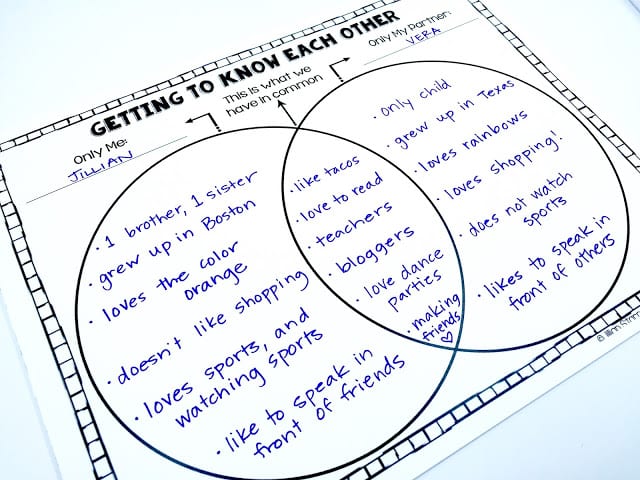 GETTING TO KNOW EACH OTHER
Only Me:
JILLIAN
This is what we
have in common
Only My Partner:
VERA
• 1 brother, 1 sister
• grew up in Boston
• loves the color
orange
• doesn't like shopping
• loves sports, and
watching sports
• like to speak in
front of friends
• like tacos
• love to read
• teachers
• bloggers
• love dance
parties
• making
friends
♡
• only child
• grew up in Texas
• loves rainbows
• loves shopping!
• does not watch
sports
• likes to speak in
front of others